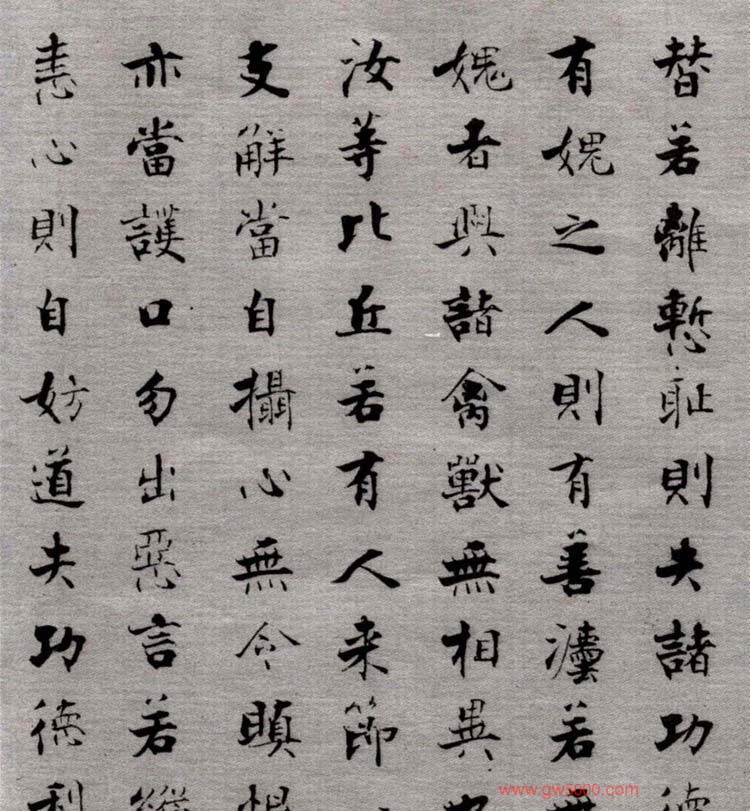 替若離慙耻則失諸功德
有媿之人則有善灋若無
媿者與諸禽獸無相異也
汝等比丘若有人来節
支解當自攝心無令瞋恨
亦當護口勿出惡言若縱
恚心則自妨道失功德利
www.gw5000.com